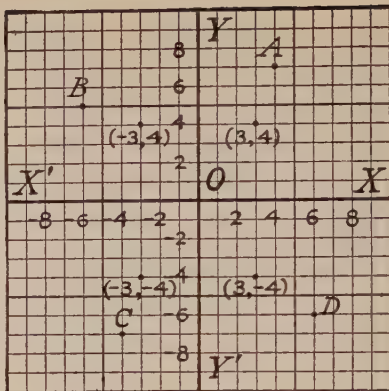 Y
8 A
B 6
4
(-3,4) (3,4)
2
X' O X
-8 -6 -4 -2 2 4 6 8
-2
-4
(-3,-4) (3,-4)
C -6 D
-8
Y'